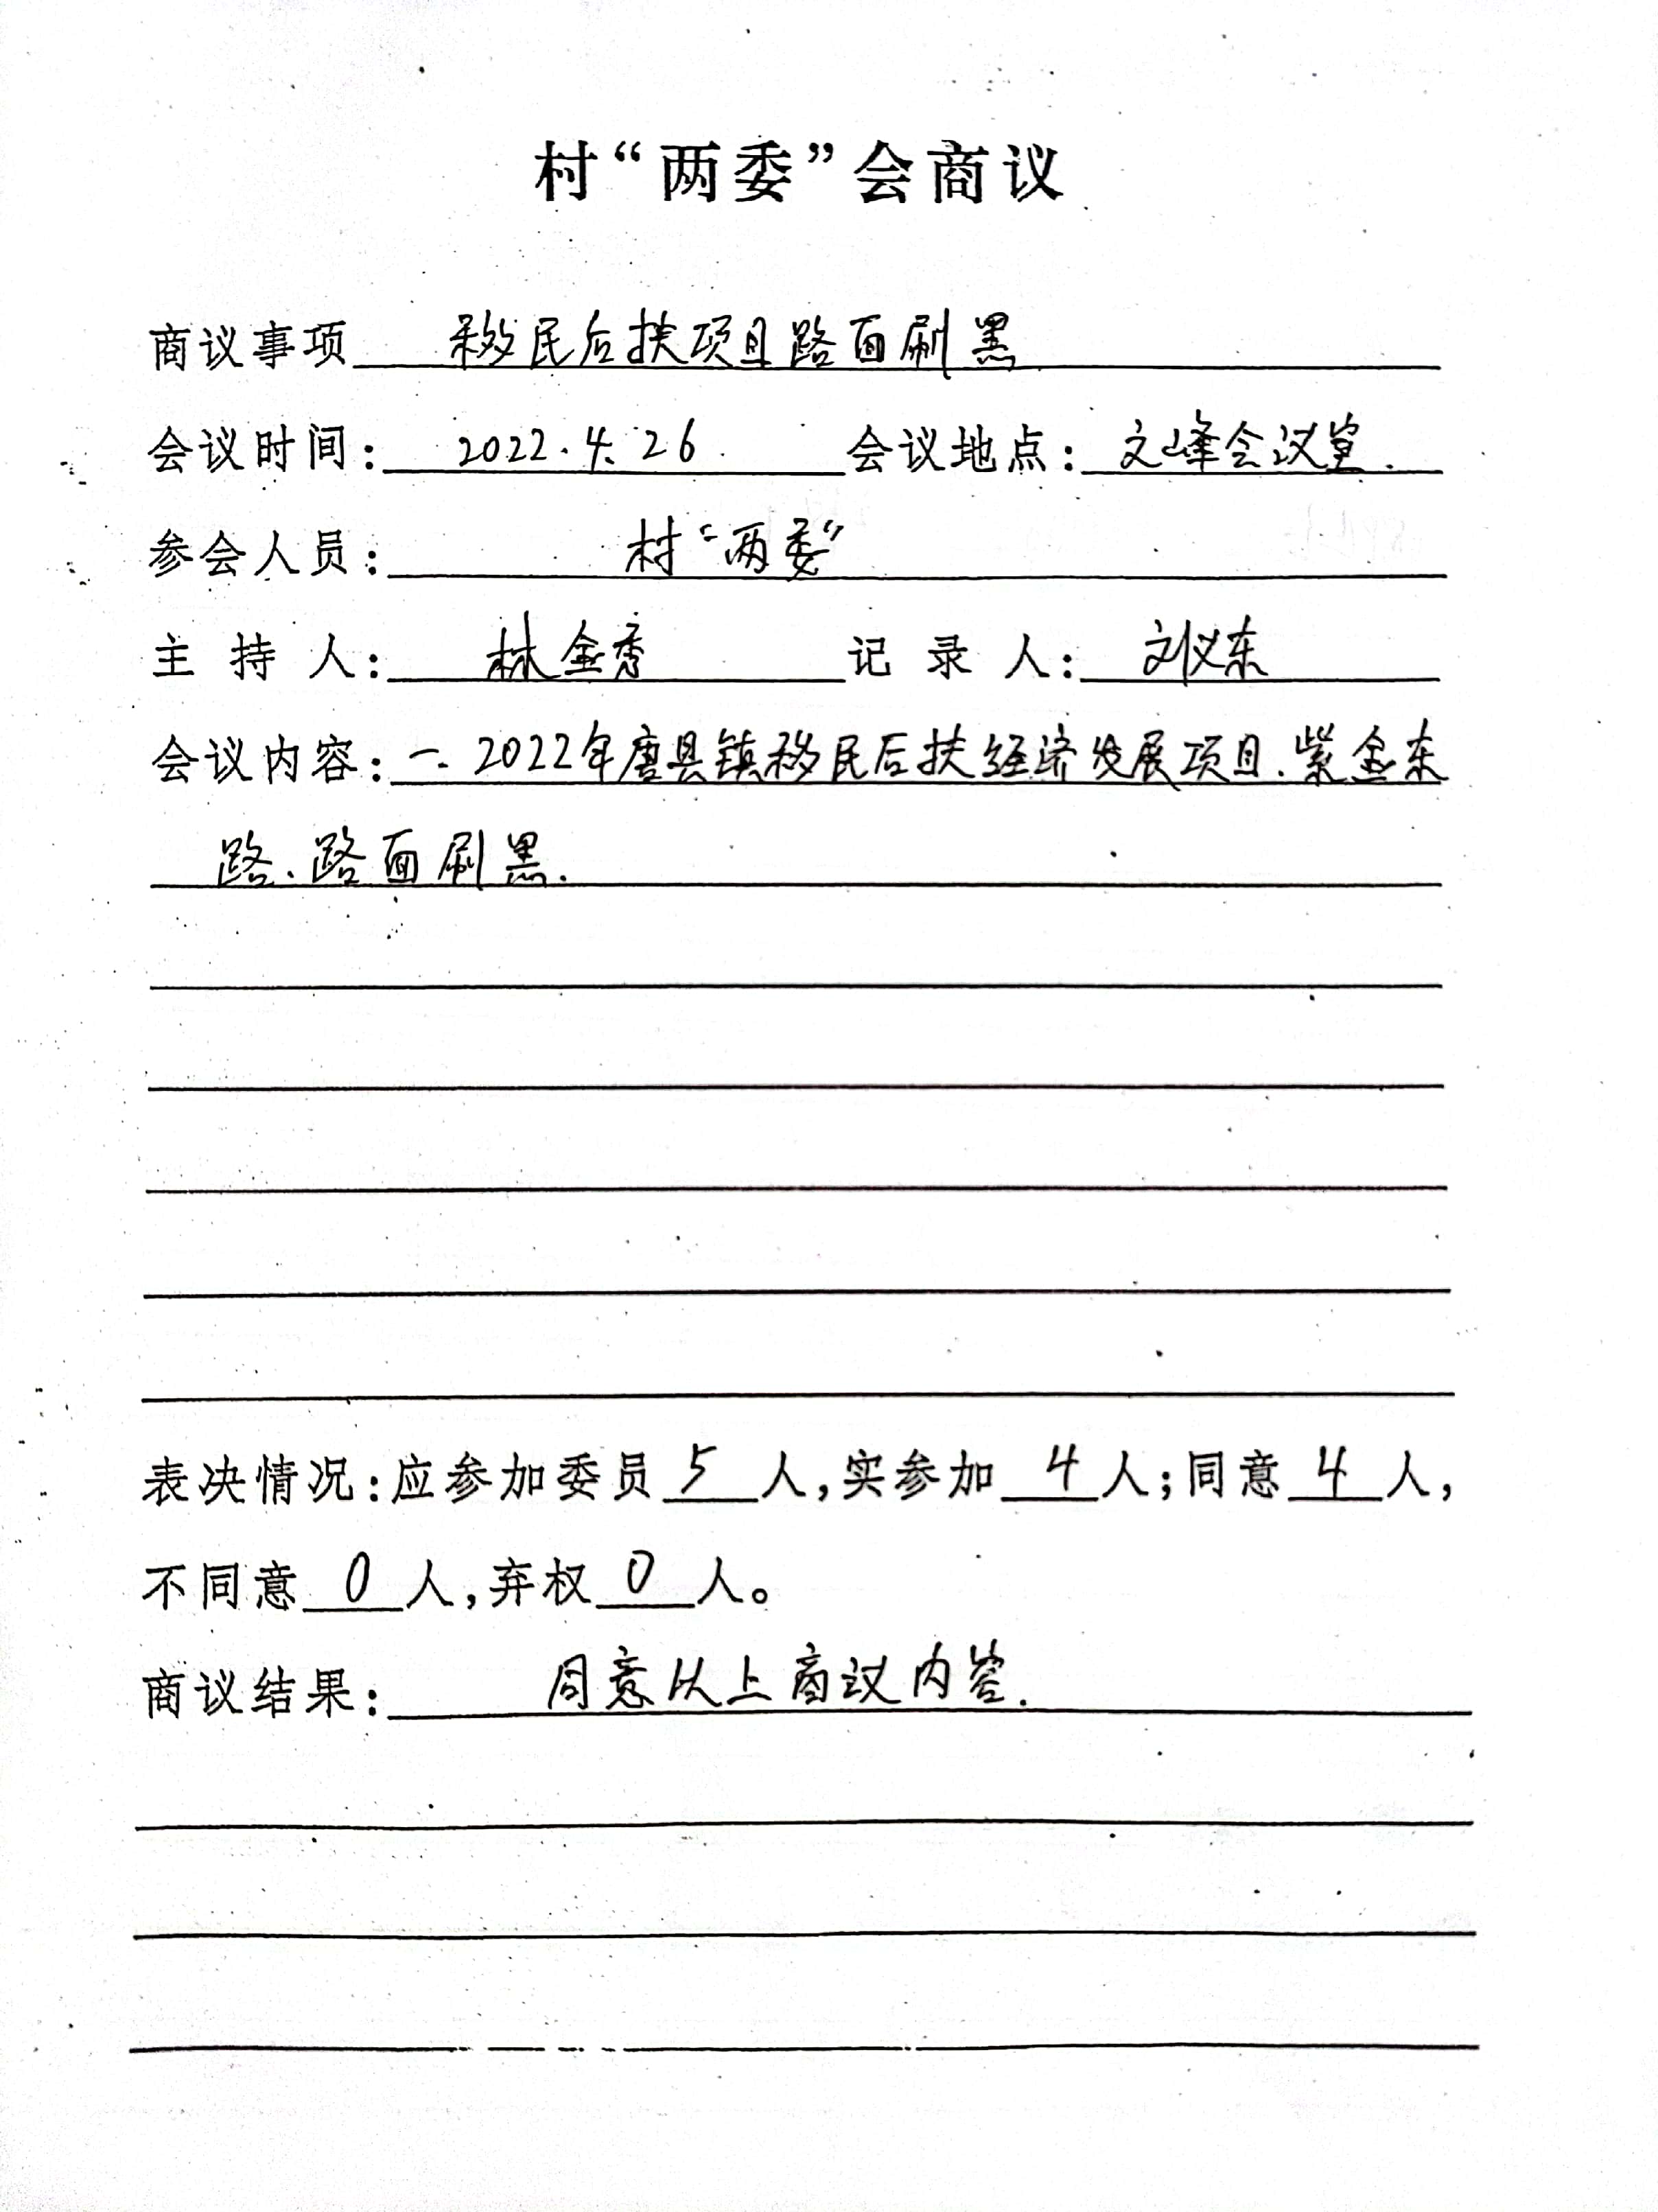 村“两委”会商议
商议事项 移民后扶项目路面刷黑
会议时间: 2022.4.26. 会议地点: 文峰会议室.
参会人员: 村“两委”
主持人: 林金秀 记录人: 刘仪东
会议内容: 一.2022年唐县镇移民后扶经济发展项目.紫金东
路.路面刷黑.
表决情况:应参加委员 5 人,实参加 4 人;同意 4 人,
不同意 0 人,弃权 0 人。
商议结果: 同意以上商议内容.